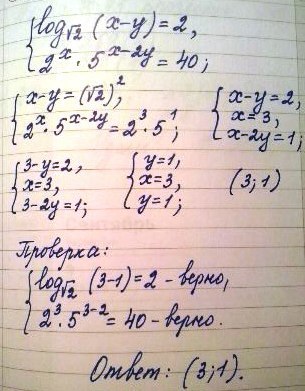 { log_√2 (x-y) = 2,
2^x · 5^(x-2y) = 40;
{ x-y = (√2)^2,
2^x · 5^(x-2y) = 2^3 · 5^1;
{ x-y = 2,
x = 3,
x-2y = 1;
{ 3-y = 2,
x = 3,
3-2y = 1;
{ y = 1,
x = 3,
y = 1;
(3; 1)
Проверка:
{ log_√2 (3-1) = 2 - верно,
2^3 · 5^(3-2) = 40 - верно.
Ответ: (3; 1).